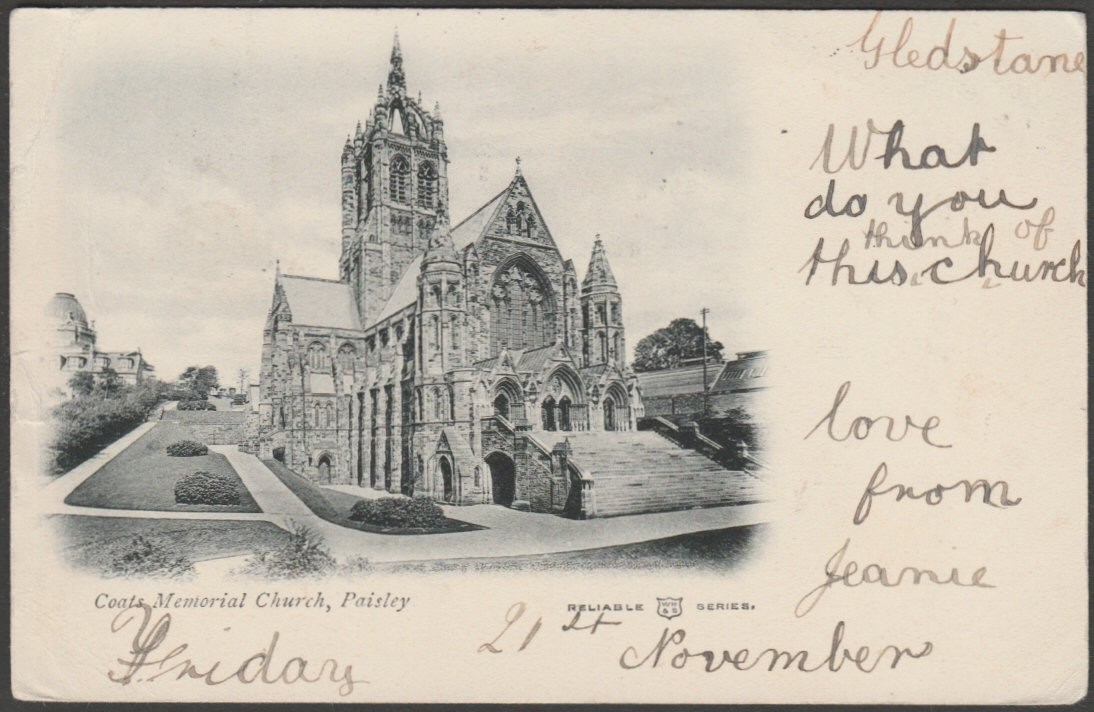 Gledstane
What
do you
think of
this church
love
from
Jeanie
Coats Memorial Church, Paisley
RELIABLE WR & S SERIES.
Friday 21st November